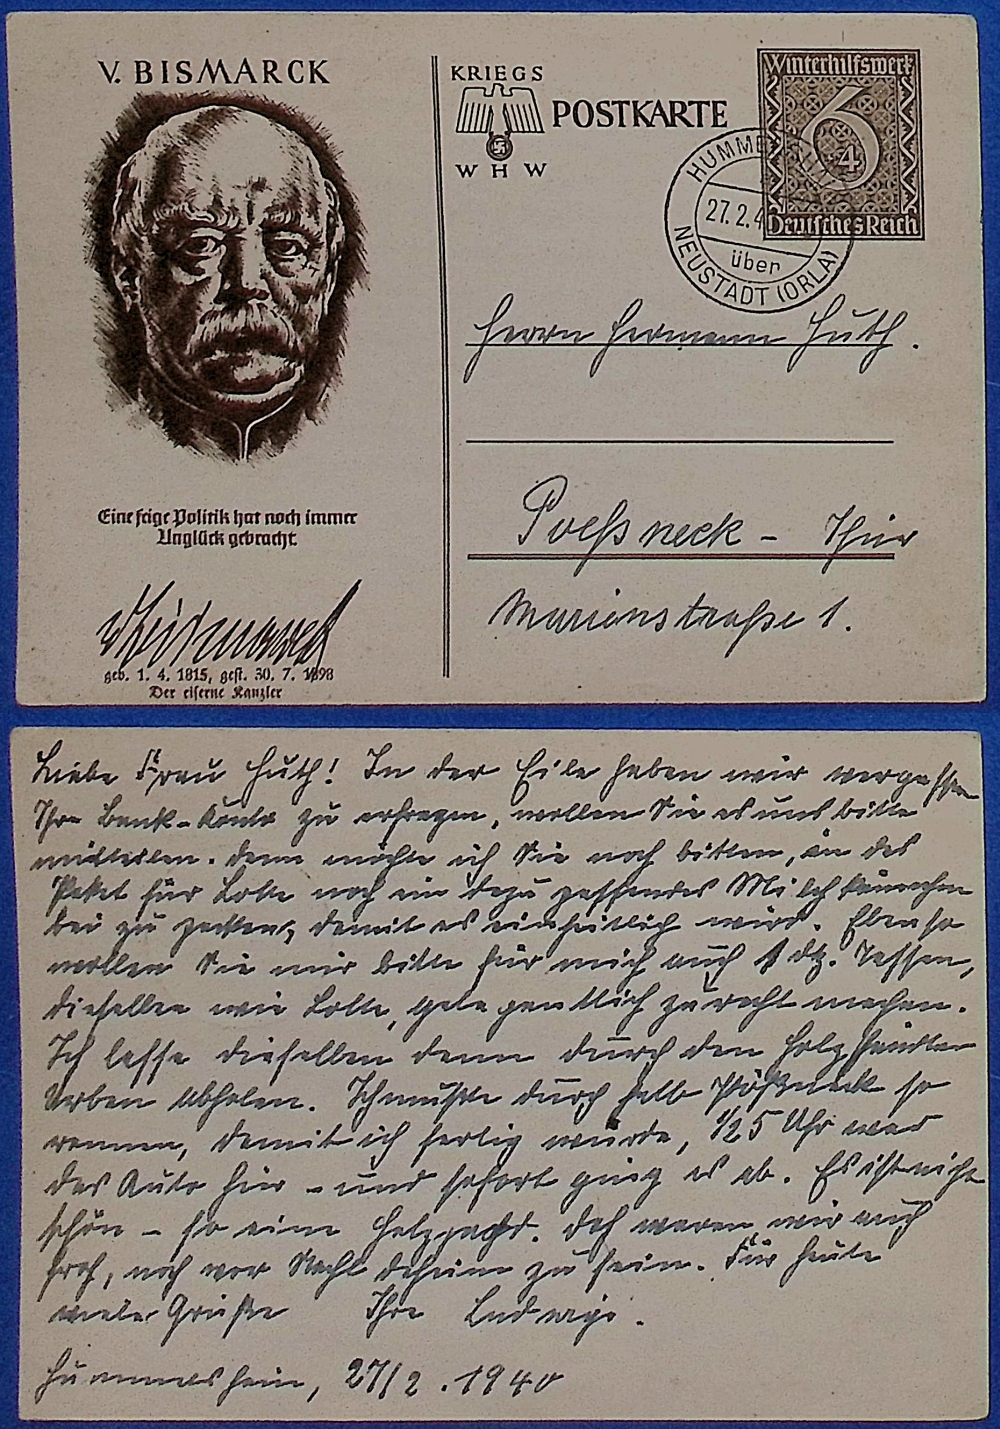 V. BISMARCK
Eine feige Politik hat noch immer
Unglück gebracht.
v Bismarck
geb. 1. 4. 1815, gest. 30. 7. 1898
Der eiserne Kanzler
KRIEGS
WHW
POSTKARTE
Winterhilfswerk
6
4
Deutsches Reich
HUMME
27.2.4
über
NEUSTADT (ORLA)
Herrn Hermann Huth.
Poeßneck - Thür
Marienstraße 1.
Liebe Frau Huth! In der Eile haben wir vergessen
Ihr Bank-Konto zu erfragen, wollen Sie es uns bitte
mitteilen. Dann möchte ich Sie noch bitten, in das
Paket für Lotte noch ein dazu passendes Milchkännchen
bei zu packen, damit es einheitlich wird. Ebenso
wollen Sie mir bitte für mich auch 1 dtz. Tassen,
dieselben wie Lotte, gelegentlich zurecht machen.
Ich lasse dieselben dann durch den Holzhändler
Urban abholen. Ich mußte durch halb Pößneck so
rennen, damit ich fertig wurde, 1/2 5 Uhr war
das Auto hier - und sofort ging es ab. Es ist nicht
schön - so eine Hetzjagd. Doch waren wir auch
froh, noch vor Nacht daheim zu sein. Für heute
viele Grüße Ihre Ludwigs.
Hummelshain, 27/2. 1940